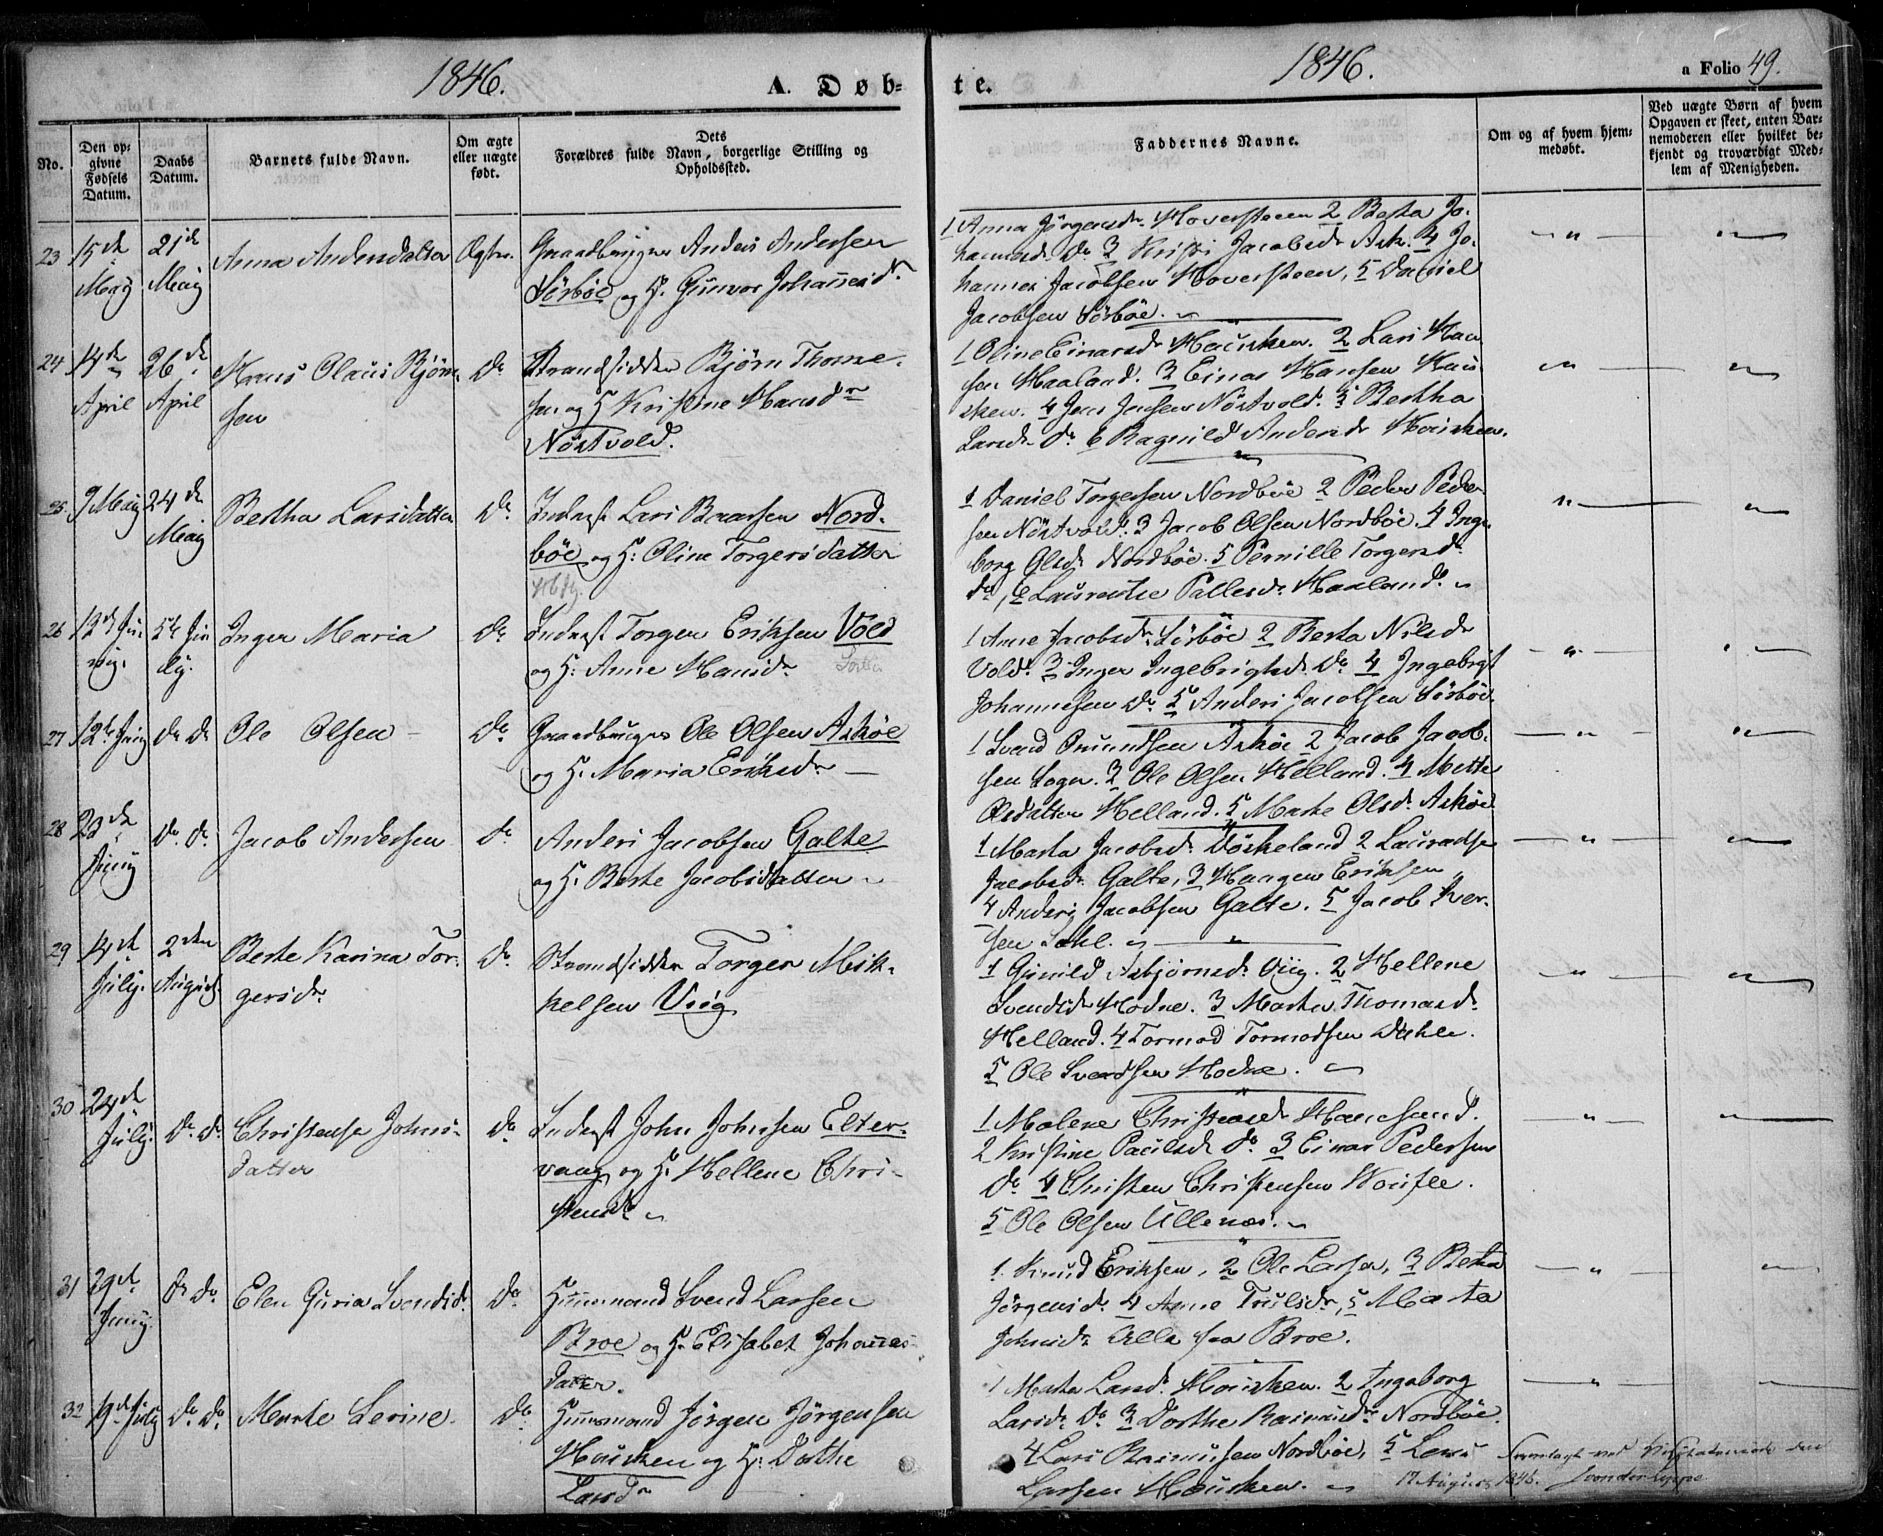 1846.
A. Døb=
te.
1846.
a Folio 49.
No.
Den op=
givne
Fødsels
Datum.
Daabs
Datum.
Barnets fulde Navn.
Om ægte
eller uægte
født.
Dets
Forældres fulde Navn, borgerlige Stilling og
Opholdssted.
Faddernes Navne.
Om og af hvem hjem=
medøbt.
Ved uægte Børn af hvem
Opgaven er skeet, enten Bar=
nemoderen eller hvilket be=
kjendt og troværdigt Med=
lem af Menigheden.
23
15de
Maij
21de
Maij
Anna Andersdatter
Ægte
Gaardbruger Anders Andersen
Sörböe og H. Gunvor Johannesdr
1 Anna Jörgensdr Hoversteen 2 Berta Jo-
hannesdr Do 3 Kristi Jacobsdr Ask. 4 Jo-
hannes Jacobsen Hoversteen, 5 Daniel
Jacobsen Sörböe.
24
14de
April
26de
April
Hans Olaus Björn-
sen
Do
Strandsidder Björn Thorse-
sen og H Kristine Hansdr
Nöstvold.
1 Oline Einarsdr Hausken. 2 Lars Han-
sen Haaland. 3 Einar Hansen Haus-
ken. 4 Jens Jensen Nöstvold. 5 Bertha
Larsdr Do 6 Ragnild Andersdr Hausken.
25
9 Maij
24de
Maij
Bertha Larsdatter
Do
Inderst Lars Baarsen Nord-
böe og H: Oline Torgersdatter
1 Daniel Torgersen Nordböe 2 Peder Peder-
sen Nöstvold. 3 Jacob Olsen Nordböe. 4 Inge-
borg Olsdr Nordböe. 5 Pernille Torgersdr
Do, 6 Laurentse Pallesdr Haaland.
26
5te Ju-
ly.
Inger Maria
Do
Inderst Torger Eriksen Vold
og H: Anne Hansdr
1 Anne Jacobsdr Sörböe 2 Berta Nilsdr
Vold. 3 Inger Ingebrigtsdr Do 4 Ingebrigt
Johannesen Do 5 Anders Jacobsen Sörböe
27
12te Juny
Do Do
Ole Olsen
Do
Gaardbruger Ole Olsen Asköe
og H. Maria Eriksdr
1 Svend Omundsen Asköe 2 Jacob Jacob-
sen Sogn. 3 Ole Olsen Helland. 4 Mette
Olsdatter Helland. 5 Marte Olsdr Asköe
28
Juny
Do Do
Jacob Andersen
Do
Anders Jacobsen Galte
og H. Berte Jacobsdatter
1 Marta Jacobsdr Döskeland 2 Lauradse
Jacobsdr Galte, 3 Haagen Eriksen
4 Anders Jacobsen Galte. 5 Jacob Iver-
sen Dahl.
29
14de
July.
2den
August
Berte Karina Tor-
gersdr
Do
Strandsidder Torger Mik-
kelsen Viig
1 Gunild Asbjörnsdr Viig. 2 Hellene
Svendsdr Hodne. 3 Marta Thomasdr
Helland. 4 Tormod Tormodsen Dahle.
5 Ole Svendsen Hodne.
30
24de
July.
Do Do
Christense Johns-
datter
Do
Inderst John Johnsen Elter-
vaag og H. Hellene Chri-
stensdr
1 Malene Christensdr Hanasand.
2 Kristine Paulsdr Do 3 Einar Pedersen
Do 4 Christen Christensen
5 Ole Olsen Ullenæs.
31
29de
Juny
Do Do
Elen Guria Svendsdr
Do
Huusmand Svend Larsen
Broe og H. Elisabet Johannes-
datter.
1. Knud Eriksen, 2 Ole Larsen, 3 Berta
Jörgensdr 4 Anne Trulsdr, 5 Marta
Johnsdr Alle fra Broe.
32
19de July
Do Do
Marte Serine
Do
Huusmand Jörgen Jörgensen
Hausken og H: Dorthe
Larsdr
1 Marta Larsdr Hausken. 2 Ingeborg
Larsdr Do 3 Dorthe Rasmusdr Nordböe.
4 Lars Rasmusen Nordböe, 5 Lars
Larsen Hausken.
Fremlagt ved Visitatsen den
17 August 1846. von der Lippe